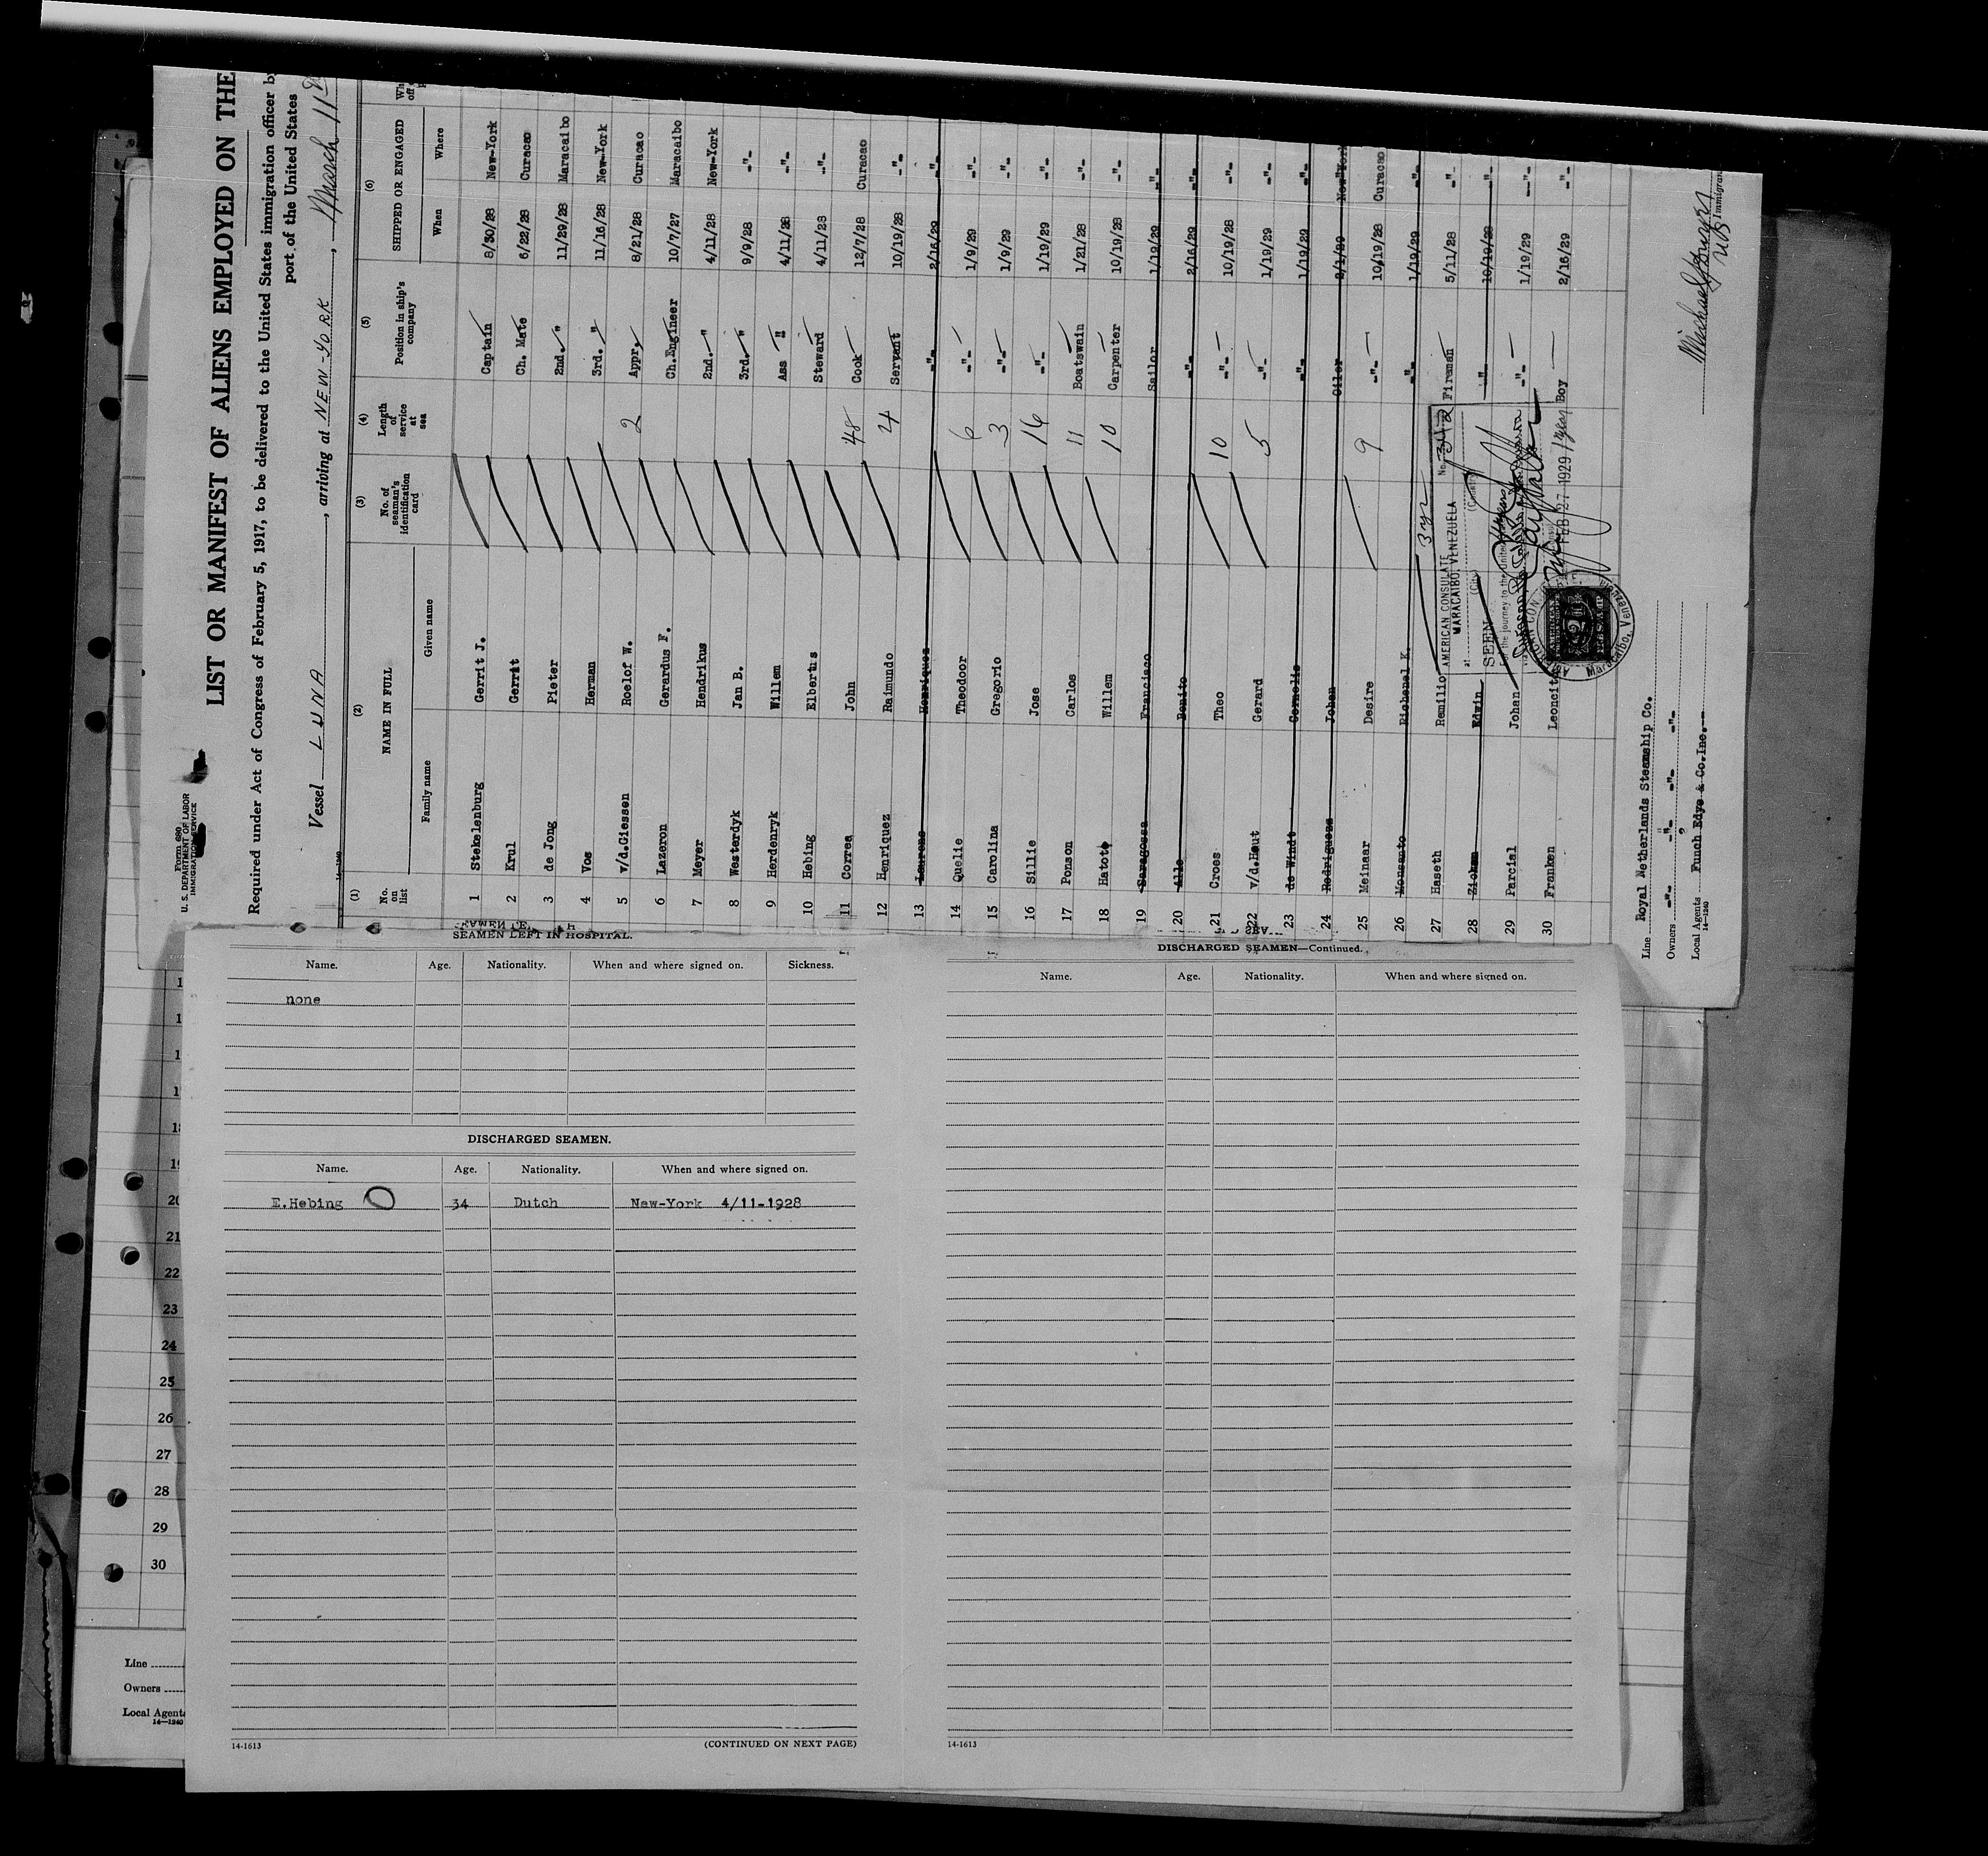 Form 680
U. S. DEPARTMENT OF LABOR
IMMIGRATION SERVICE
LIST OR MANIFEST OF ALIENS EMPLOYED ON THE
Required under Act of Congress of February 5, 1917, to be delivered to the United States immigration officer by
port of the United States
Vessel LUNA, arriving at NEW-YORK, March 11
(1) (2) (3) (4) (5) (6)
No. on list
NAME IN FULL
Family name Given name
No. of seaman's identification card
Length of service at sea
Position in ship's company
SHIPPED OR ENGAGED
When Where
1 Stekelenburg Gerrit J. Captain 8/30/28 New-York
2 Krul Gerrit Ch. Mate 6/22/28 Curacao
3 de Jong Pieter 2nd. " 11/29/28 Maracaibo
4 Vos Herman 3rd. " 11/16/28 New-York
5 v/d.Giessen Roelof W. 2 Appr. 8/21/28 Curacao
6 Lazeron Gerardus F. Ch.Engineer 10/7/27 Maracaibo
7 Meyer Hendrikus 2nd. " 4/11/28 New-York
8 Westerdyk Jan B. 3rd. " 9/9/28 -"-
9 Herdenryk Willem Ass " 4/11/28 -"-
10 Hebing Elbertus Steward 4/11/28 -"-
11 Correa John 48 Cook 12/7/28 Curacao
12 Henriquez Raimundo 4 Servant 10/19/28 -"-
13 Laurens Henriquez -"- 2/16/29 -"-
14 Quelie Theodoor 6 -"- 1/9/29 -"-
15 Carolina Gregorio 3 -"- 1/9/29 -"-
16 Sillie Jose 14 -"- 1/19/29 -"-
17 Ponson Carlos 11 Boatswain 1/21/28 -"-
18 Hatote Willem 10 Carpenter 10/19/28 -"-
19 Saragossa Francisco Sailor 1/19/29 -"-
20 Alle Benito -"- 2/16/29 -"-
21 Croes Theo 10 -"- 10/19/28 -"-
22 v/d.Hout Gerard 5 -"- 1/19/29 -"-
23 de Windt Cornelis -"- 1/19/29 -"-
24 Rodrigueza Johan Oiler 2/1/29 New-York
25 Meinaar Desire 9 -"- 10/19/28 Curacao
26 Monsanto Richenel K. -"- 1/19/29 -"-
27 Haseth Remilio 3 yr Fireman 5/11/28 -"-
28 Edwin -"- 10/19/28 -"-
29 Parcial Johan -"- 1/19/29 -"-
30 Franken Leoncito 1 year Boy 2/16/29 -"-
AMERICAN CONSULATE
MARACAIBO, VENEZUELA
No. 342
at (City) (Country)
SEEN
For the journey to the United
FEB 27 1929
Maracaibo, Venezuela
Line Royal Netherlands Steamship Co.
Owners -"- -"- -"- -"-
Local Agents Funch Edye & Co.Inc.--
14-1240
Immigrant
SEAMEN LEFT IN HOSPITAL.
Name. Age. Nationality. When and where signed on. Sickness.
none
DISCHARGED SEAMEN.
Name. Age. Nationality. When and where signed on.
E.Hebing 34 Dutch New-York 4/11-1928
14-1613
(CONTINUED ON NEXT PAGE)
DISCHARGED SEAMEN—Continued.
Name. Age. Nationality. When and where signed on.
14-1613
20
21
22
23
24
25
26
27
28
29
30
Line
Owners
Local Agents
14-1240